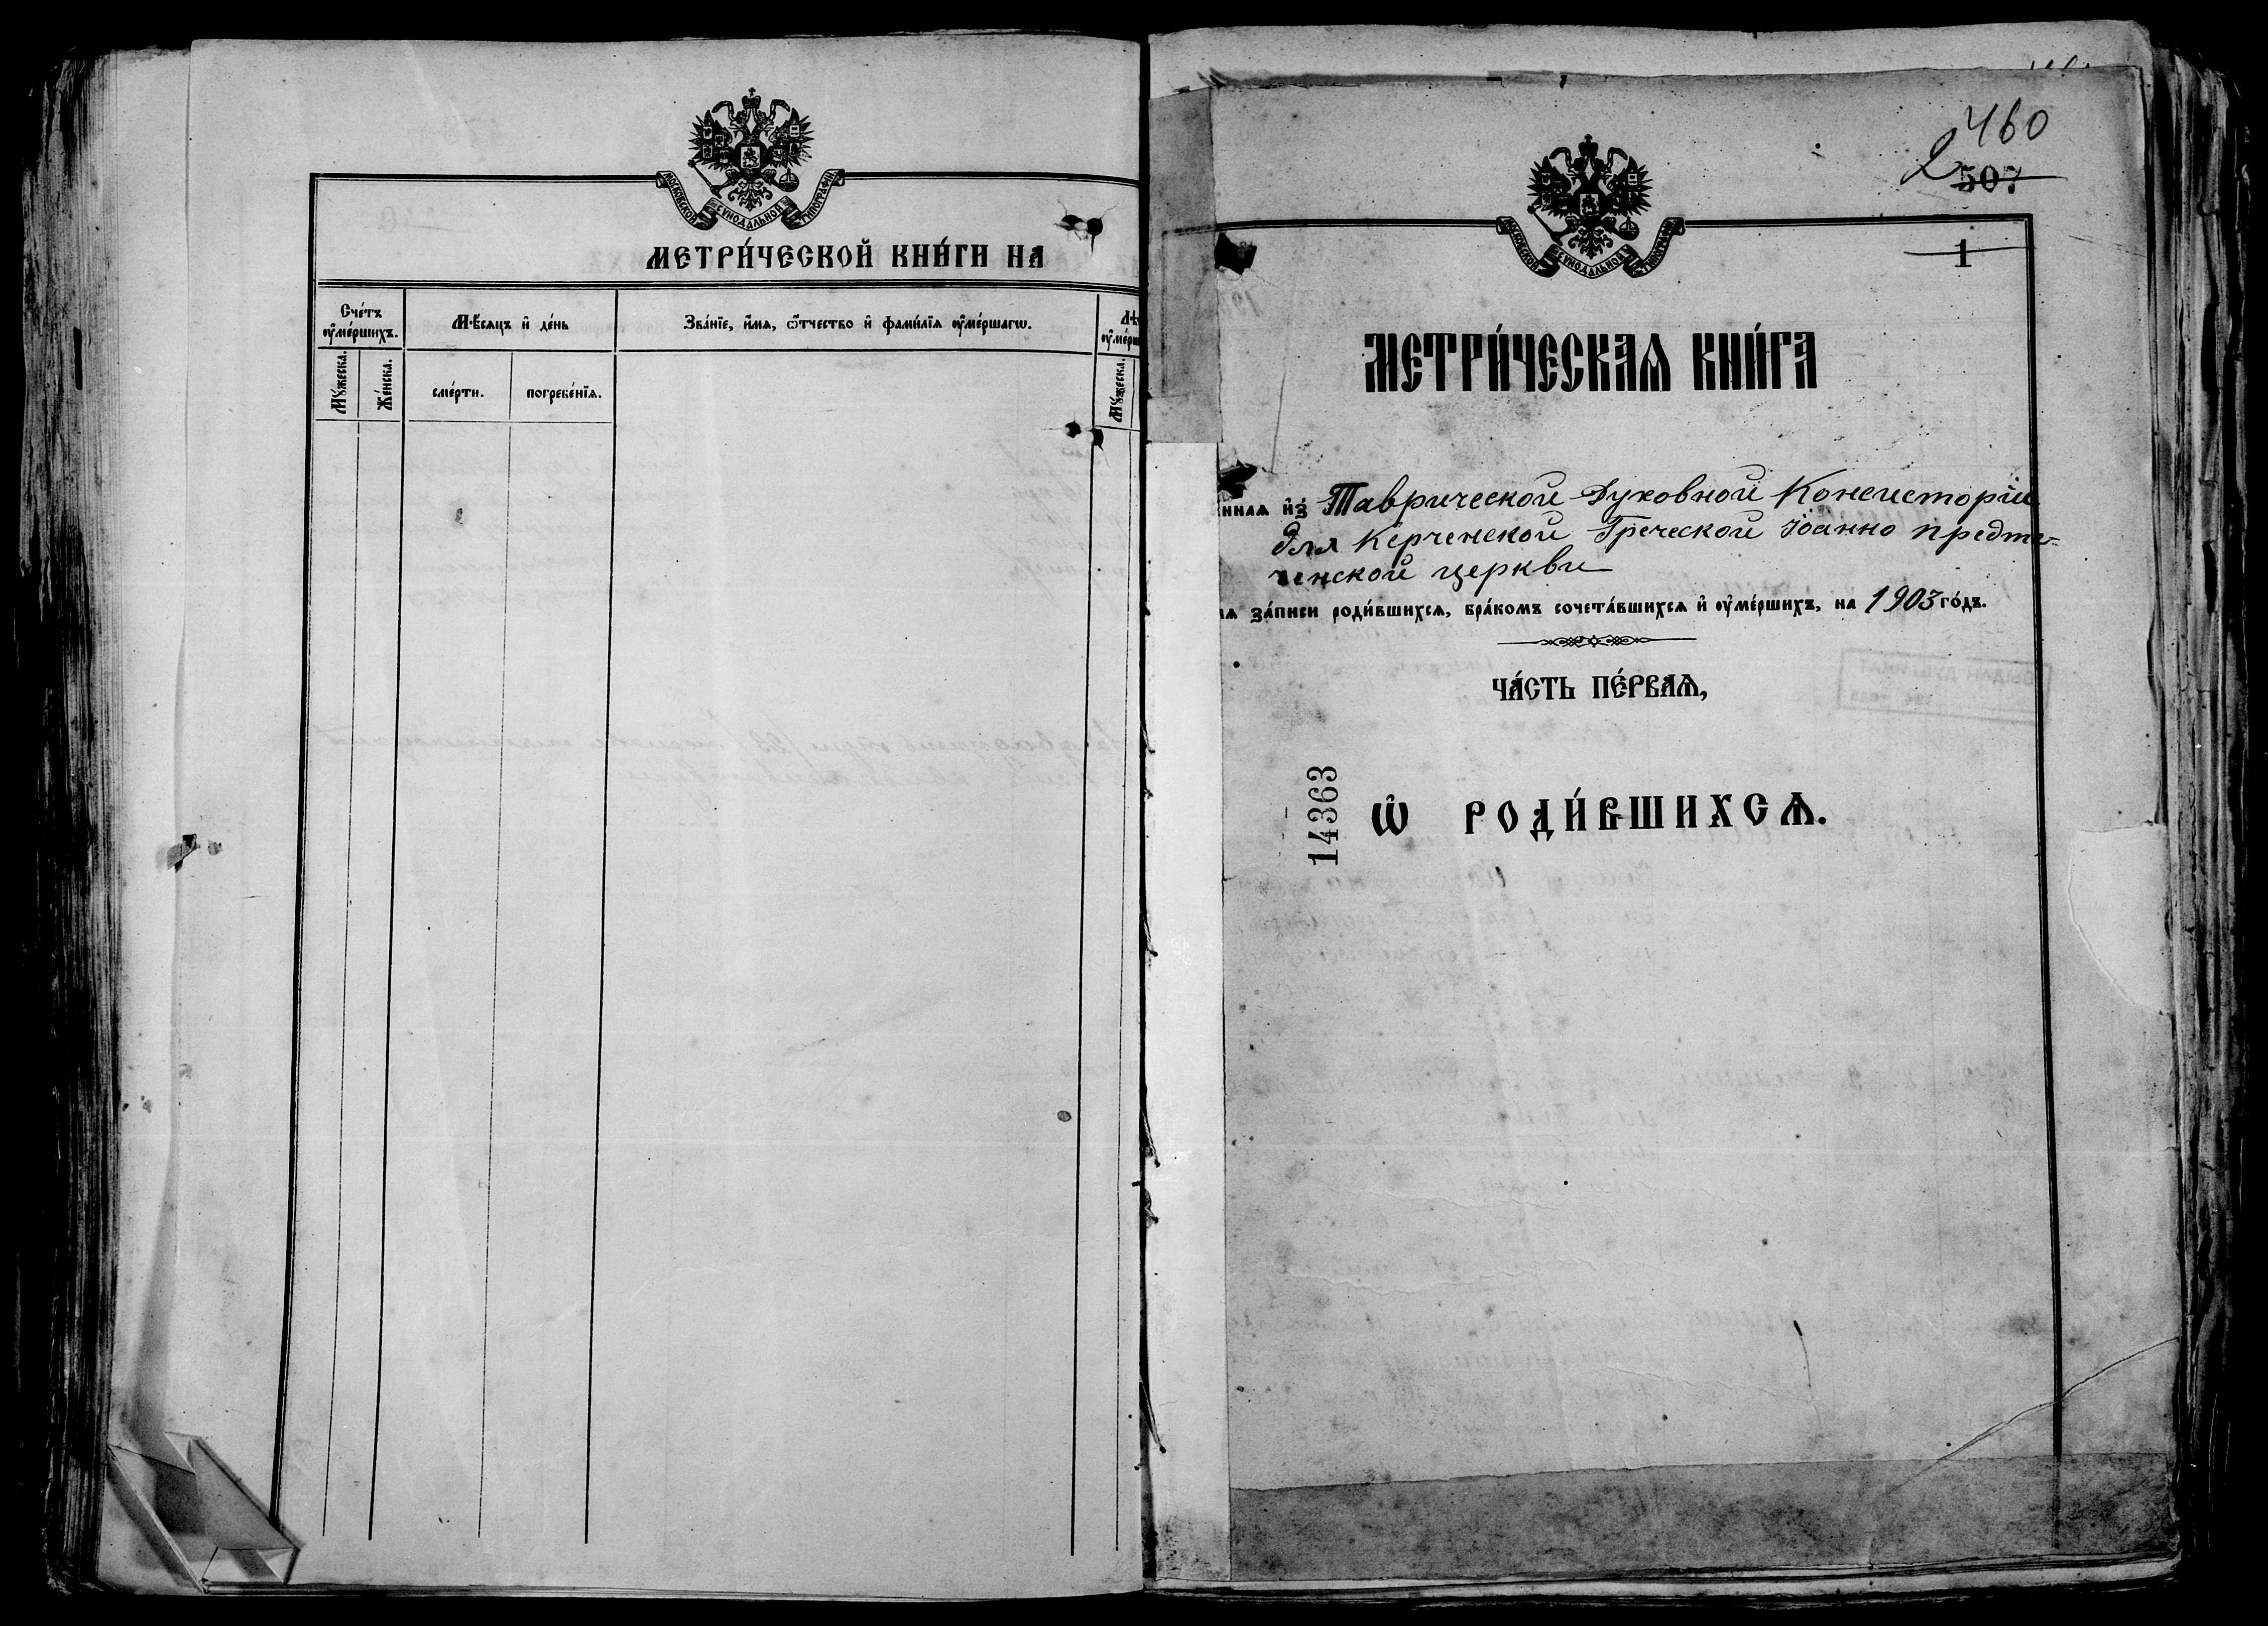 МОСКОВСКОЙ СѴНОДАЛЬНОЙ ТИПОГРАФІИ
МЕТРИ́ЧЕСКОЙ КНИ́ГИ НА
Сче́тъ ᲂу҆ме́ршихъ.
Мѣ́сяцъ и҆ де́нь
Зва́нїе, и҆́мя, ѻ҆́тчество и҆ фами́лїя ᲂу҆ме́ршагѡ.
Мꙋ́жеска.
Же́нска.
сме́рти.
погребе́нїя.
Мꙋ́жеска.
2 460
507
МОСКОВСКОЙ СѴНОДАЛЬНОЙ ТИПОГРАФІИ
1
МЕТРИ́ЧЕСКАѦ КНИ́ГА
ннаѧ и҆з̾ Таврической Духовной Консисторіи
для Керченской Греческой Іоанно предте-
ченской церкви
ѧ за́писи роди́вшихсѧ, бра́комъ сочета́вшихсѧ и҆ ᲂу҆ме́ршихъ, на 1903 го́дъ.
ЧА́СТЬ ПЕ́РВАѦ,
14363
Ѽ РОДИ́ВШИХСѦ.